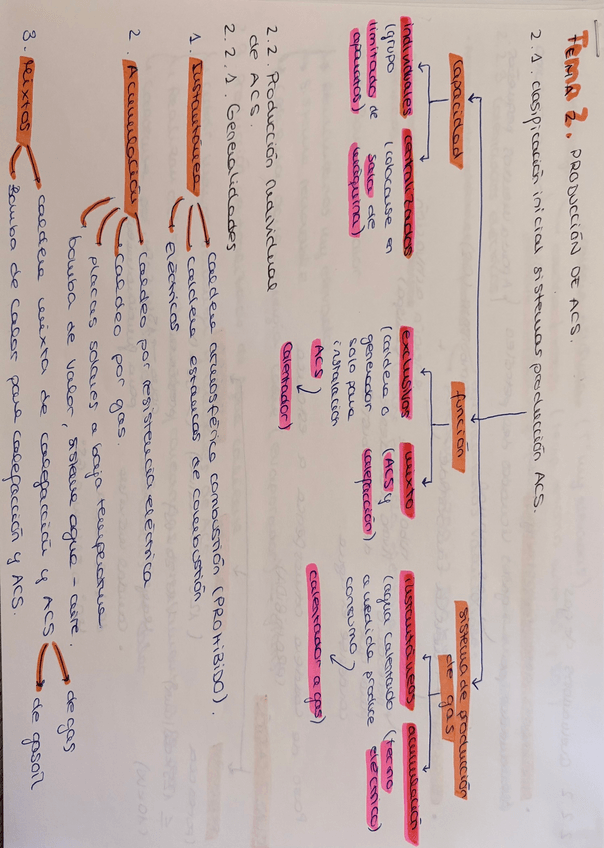 TEMA 2. PRODUCCIÓN DE ACS.
2.1. clasificación inicial sistemas producción ACS.
capacidad
individuales
(grupo
limitado de
aparatos)
centralizados
(colocarse en
sala de
máquina)
función
exclusivos
(caldera o
generador
solo para
instalación
ACS
calentador)
mixto
(ACS y
calefacción)
sistema de producción
de gas
instantáneos
(agua calentado
a medida produce
consumo
calentador a gas)
acumulación
(termo
eléctrico)
2.2. Producción individual
de ACS.
2.2.1. Generalidades
1. Instantáneos
caldera atmosférica combustión (PROHIBIDO).
caldera estancas de combustión.
eléctricos
2. Acumulación
Caldeo por resistencia eléctrica
Caldeo por gas.
placas solares a baja temperatura
bomba de valor, sistema agua - aire.
3. Mixtos
caldera mixta de calefacción y ACS
de gas
de gasoil
Bomba de calor para calefacción y ACS.